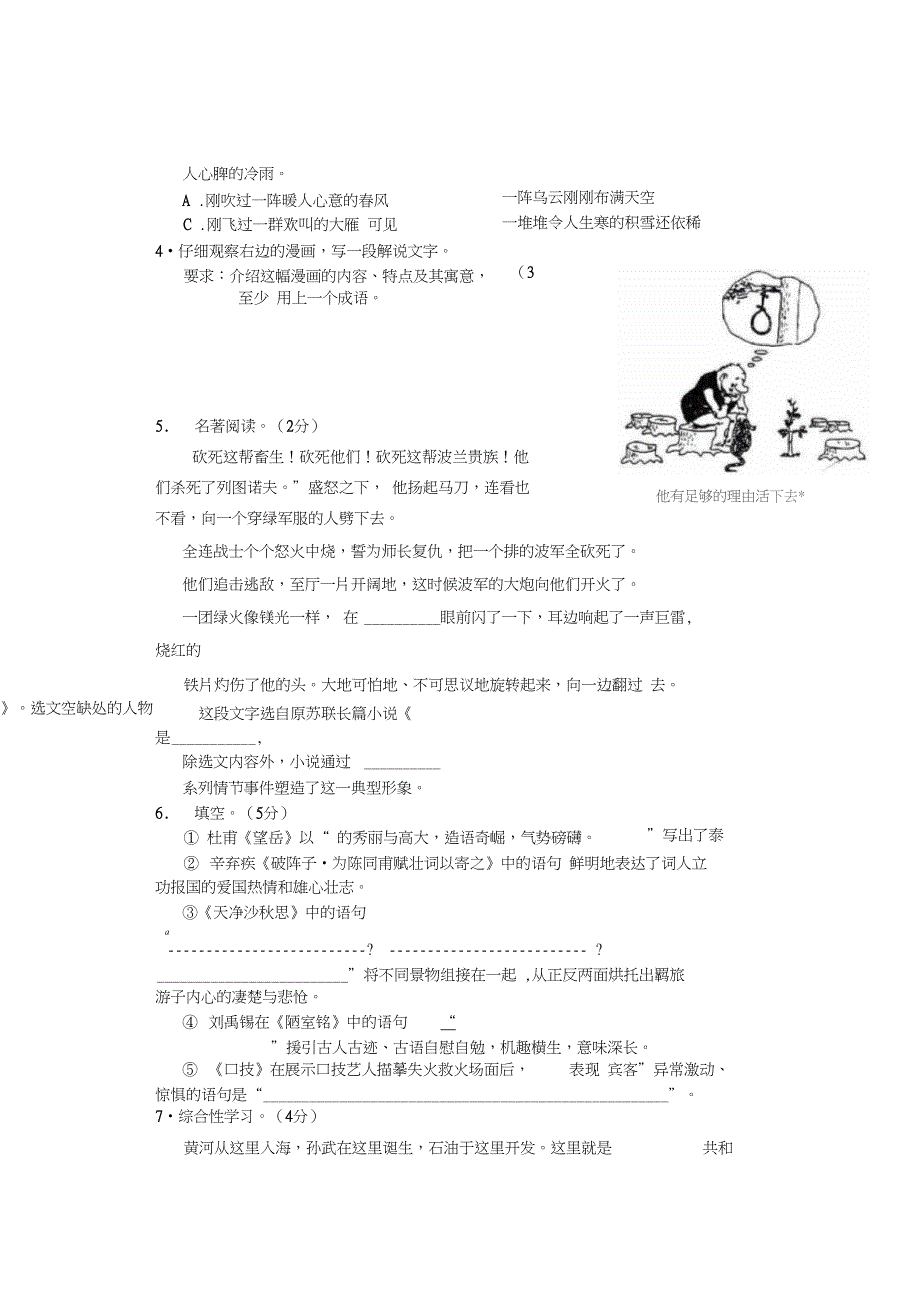 人心脾的冷雨。
A .刚吹过一阵暖人心意的春风 一阵乌云刚刚布满天空
C .刚飞过一群欢叫的大雁 可见 一堆堆令人生寒的积雪还依稀
4·仔细观察右边的漫画，写一段解说文字。
要求：介绍这幅漫画的内容、特点及其寓意， （3
至少 用上一个成语。
5. 名著阅读。（2分）
砍死这帮畜生！砍死他们！砍死这帮波兰贵族！他
们杀死了列图诺夫。”盛怒之下， 他扬起马刀，连看也
不看，向一个穿绿军服的人劈下去。
他有足够的理由活下去*
全连战士个个怒火中烧，誓为师长复仇，把一个排的波军全砍死了。
他们追击逃敌，至厅一片开阔地，这时候波军的大炮向他们开火了。
一团绿火像镁光一样， 在 __________眼前闪了一下，耳边响起了一声巨雷,
烧红的
铁片灼伤了他的头。大地可怕地、不可思议地旋转起来，向一边翻过 去。
》。选文空缺处的人物 这段文字选自原苏联长篇小说《
是___________,
除选文内容外，小说通过 __________
系列情节事件塑造了这一典型形象。
6. 填空。（5分）
① 杜甫《望岳》以“ 的秀丽与高大，造语奇崛，气势磅礴。 ”写出了泰
② 辛弃疾《破阵子·为陈同甫赋壮词以寄之》中的语句 鲜明地表达了词人立
功报国的爱国热情和雄心壮志。
③《天净沙秋思》中的语句
a
--------------------------? -------------------------- ?
_________________________”将不同景物组接在一起 ,从正反两面烘托出羁旅
游子内心的凄楚与悲怆。
④ 刘禹锡在《陋室铭》中的语句 “
”援引古人古迹、古语自慰自勉，机趣横生，意味深长。
⑤ 《口技》在展示口技艺人描摹失火救火场面后， 表现 宾客”异常激动、
惊惧的语句是“_____________________________________________________”。
7·综合性学习。（4分）
黄河从这里人海，孙武在这里诞生，石油于这里开发。这里就是 共和